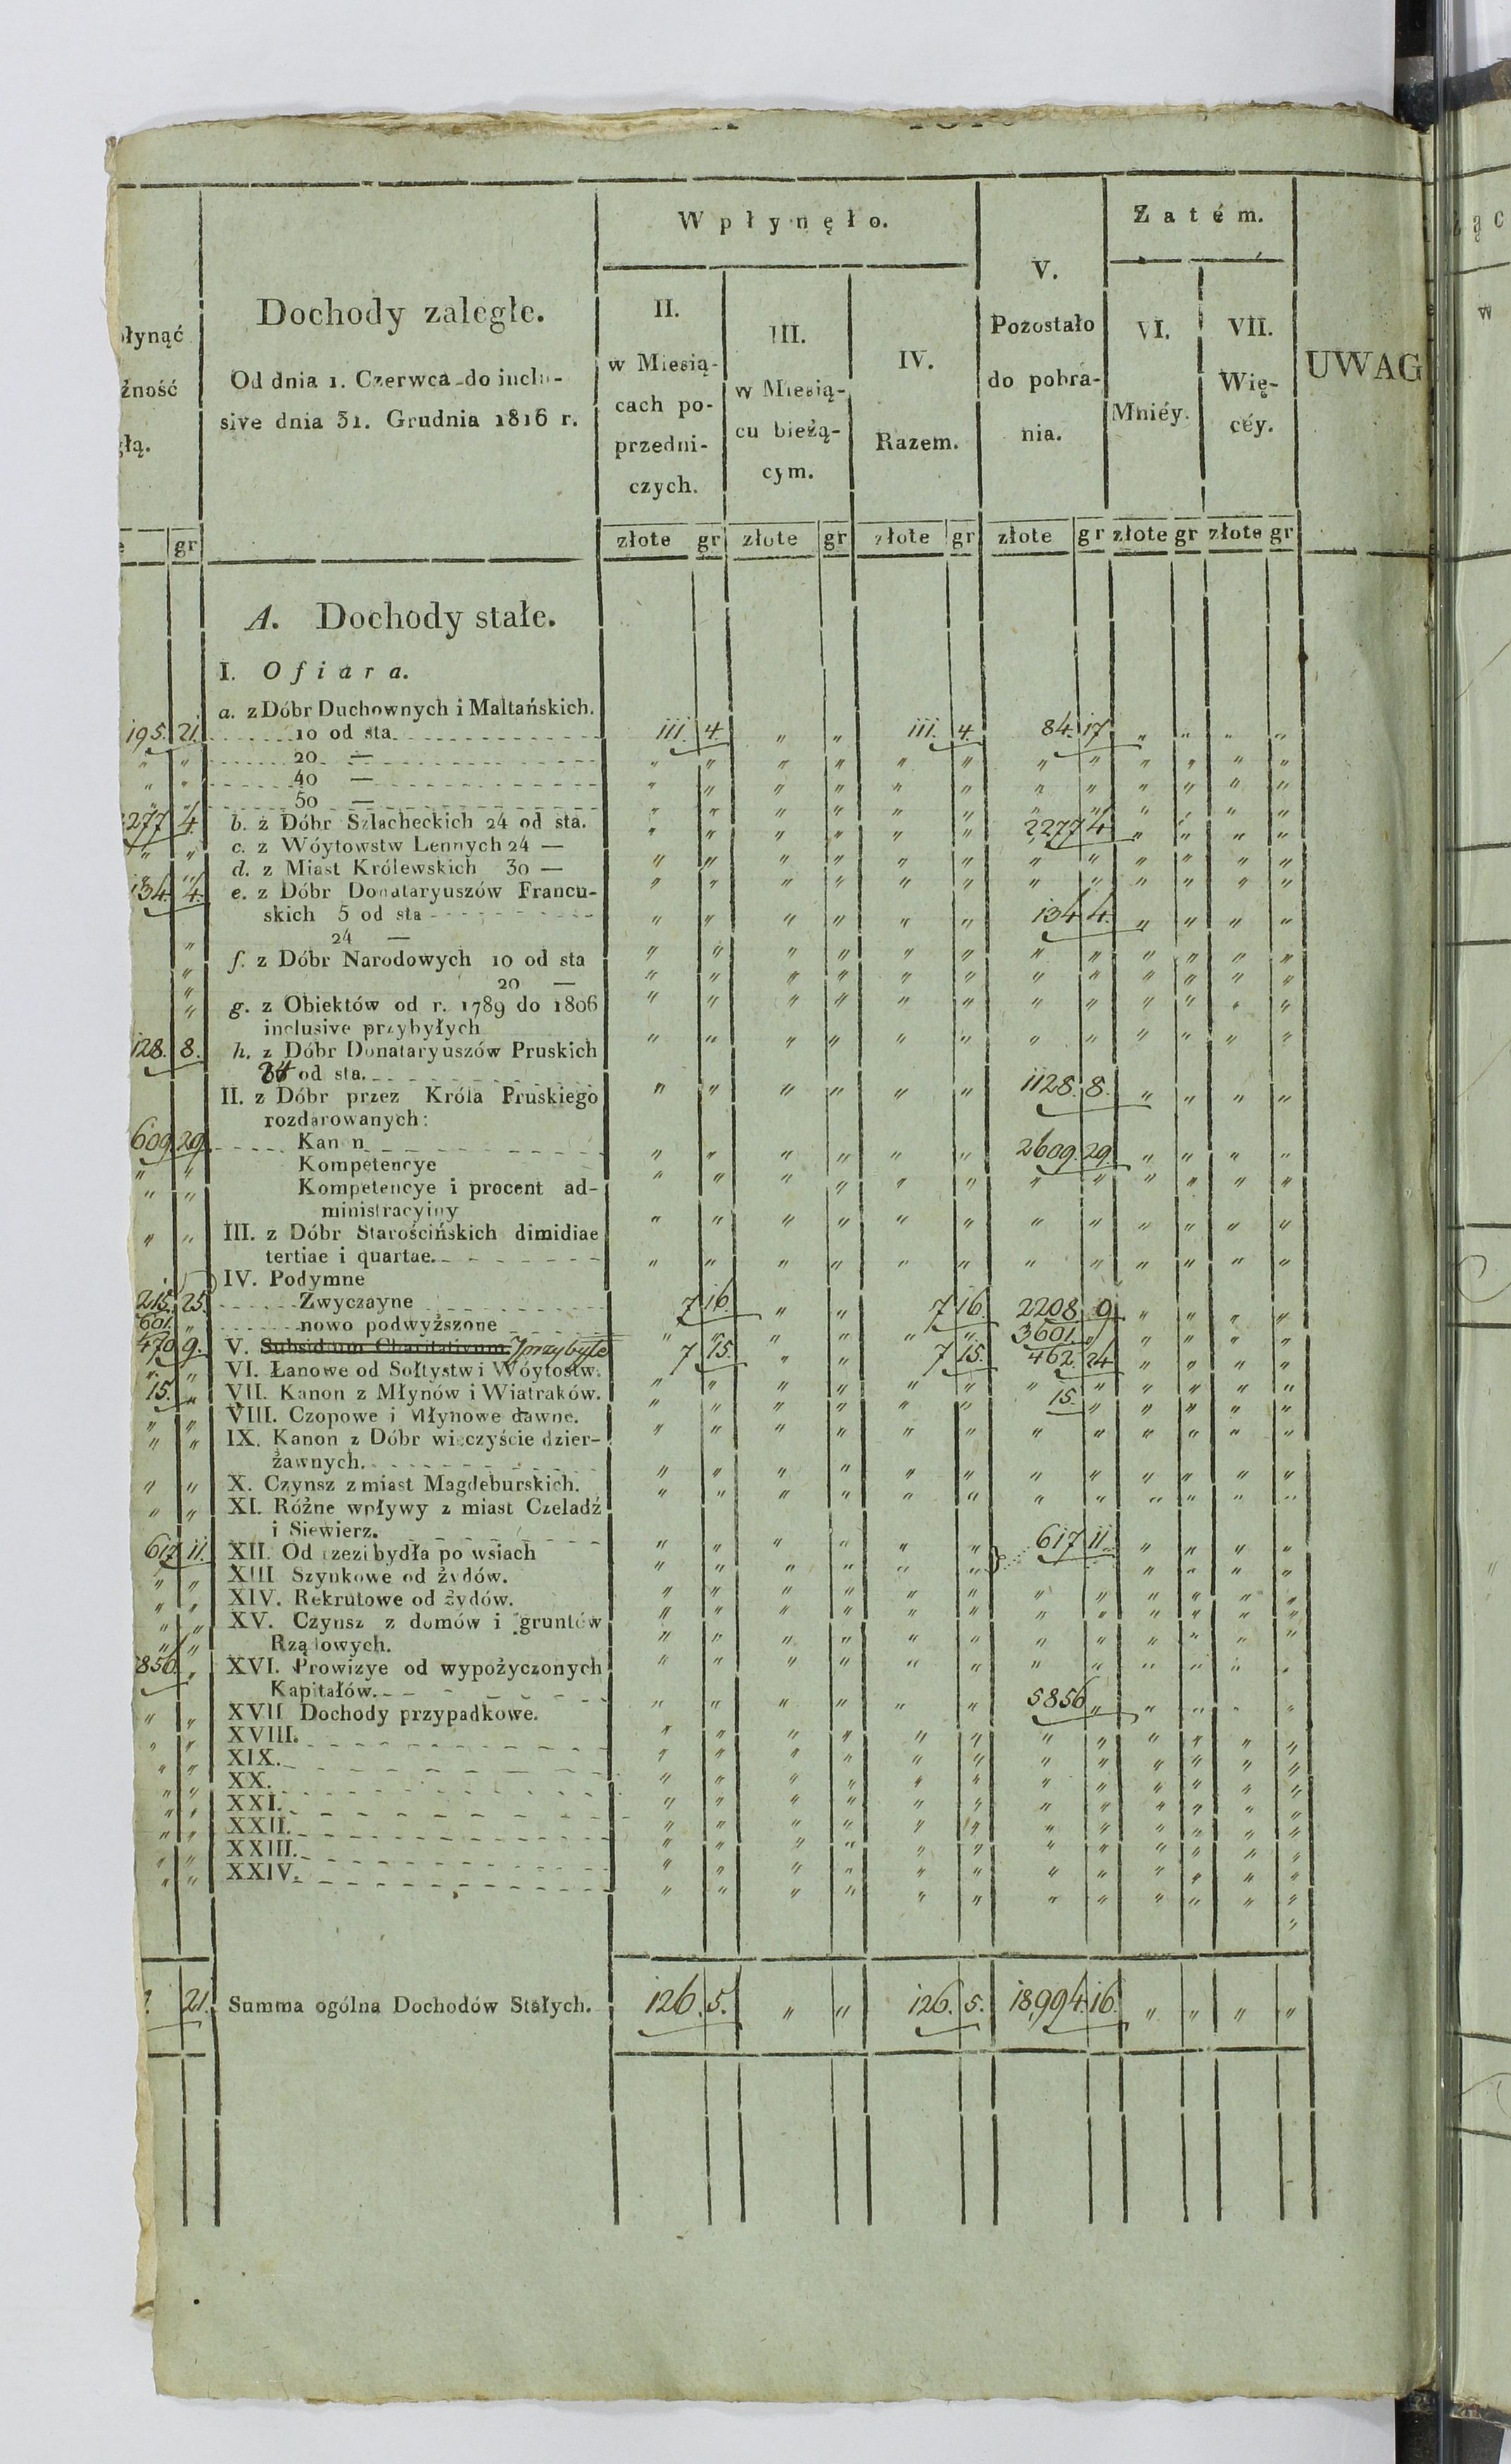 W p ł y n ę ł o.
Z a t é m.
łynąć
źność
głą.
Dochody zaległe.
Od dnia 1. Czerwca do inclu-
sive dnia 31. Grudnia 1816 r.
II.
w Miesią-
cach po-
przedni-
czych.
III.
w Miesią-
cu bieżą-
cym.
IV.
Razem.
V.
Pozostało
do pobra-
nia.
VI.
Mniéy.
VII.
Wię-
céy.
UWAG
gr złote gr złote gr złote gr złote gr złote gr złote gr
A. Dochody stałe.
I. O f i a r a.
a. z Dóbr Duchownych i Maltańskich.
195. 21. 10 od sta. 111. 4. " " 111. 4. 84. 17 " " " "
" " 20 — " " " " " " " " " " " "
" " 40 — " " " " " " " " " " " "
" " 50 — " " " " " " " " " " " "
277 4. b. z Dóbr Szlacheckich 24 od sta. " " " " " " 2277 4. " " " "
" " c. z Wóytowstw Lennych 24 — " " " " " " " " " " " "
" " d. z Miast Królewskich 30 — " " " " " " " " " " " "
134. 4. e. z Dóbr Donataryuszów Francu-
skich 5 od sta " " " " " " 134 4. " " " "
" 24 — " " " " " " " " " " " "
" f. z Dóbr Narodowych 10 od sta " " " " " " " " " " " "
" 20 — " " " " " " " " " " " "
" g. z Obiektów od r. 1789 do 1806
inclusive przybyłych " " " " " " " " " " " "
128. 8. h. z Dóbr Donataryuszów Pruskich
24 od sta. " " " " " " 1128. 8. " " " "
II. z Dóbr przez Króla Pruskiego
rozdarowanych:
609. 29. Kanon " " " " " " 2609. 29. " " " "
" " Kompetencye " " " " " " " " " " " "
" " Kompetencye i procent ad-
ministracyiny " " " " " " " " " " " "
" " III. z Dóbr Starościńskich dimidiae
tertiae i quartae. " " " " " " " " " " " "
IV. Podymne
215. 25. Zwyczayne 7 16. " " 7 16. 2208. 9. " " " "
601. " nowo podwyższone " " " " " " 3601. " " " " "
470 9. V. Subsidium Charitativum Przybyłe 7 15. " " 7 15. 462. 24 " " " "
" " VI. Łanowe od Sołtystw i Wóytostw. " " " " " " " " " " " "
15. " VII. Kanon z Młynów i Wiatraków. " " " " " " 15. " " " " "
" " VIII. Czopowe i Młynowe dawne. " " " " " " " " " " " "
" " IX. Kanon z Dóbr wieczyście dzier-
żawnych. " " " " " " " " " " " "
" " X. Czynsz z miast Magdeburskich. " " " " " " " " " " " "
" " XI. Różne wpływy z miast Czeladź
i Siewierz. " " " " " "
617 11. XII. Od rzezi bydła po wsiach " " " " " " 617 11. " " " "
" " XIII. Szynkowe od żydów. " " " " " " " " " " " "
" " XIV. Rekrutowe od żydów. " " " " " " " " " " " "
" " XV. Czynsz z domów i gruntów
" " Rządowych. " " " " " " " " " " " "
856. " XVI. Prowizye od wypożyczonych
Kapitałów. " " " " " " 5856 " " " " "
" " XVII. Dochody przypadkowe. " " " " " " " " " " " "
" " XVIII. " " " " " " " " " " " "
" " XIX. " " " " " " " " " " " "
" " XX. " " " " " " " " " " " "
" " XXI. " " " " " " " " " " " "
" " XXII. " " " " " " " " " " " "
" " XXIII. " " " " " " " " " " " "
" " XXIV. " " " " " " " " " " " "
21. Summa ogólna Dochodów Stałych. 126. 5. " " 126. 5. 18,994. 16. " " " "
ąc
w